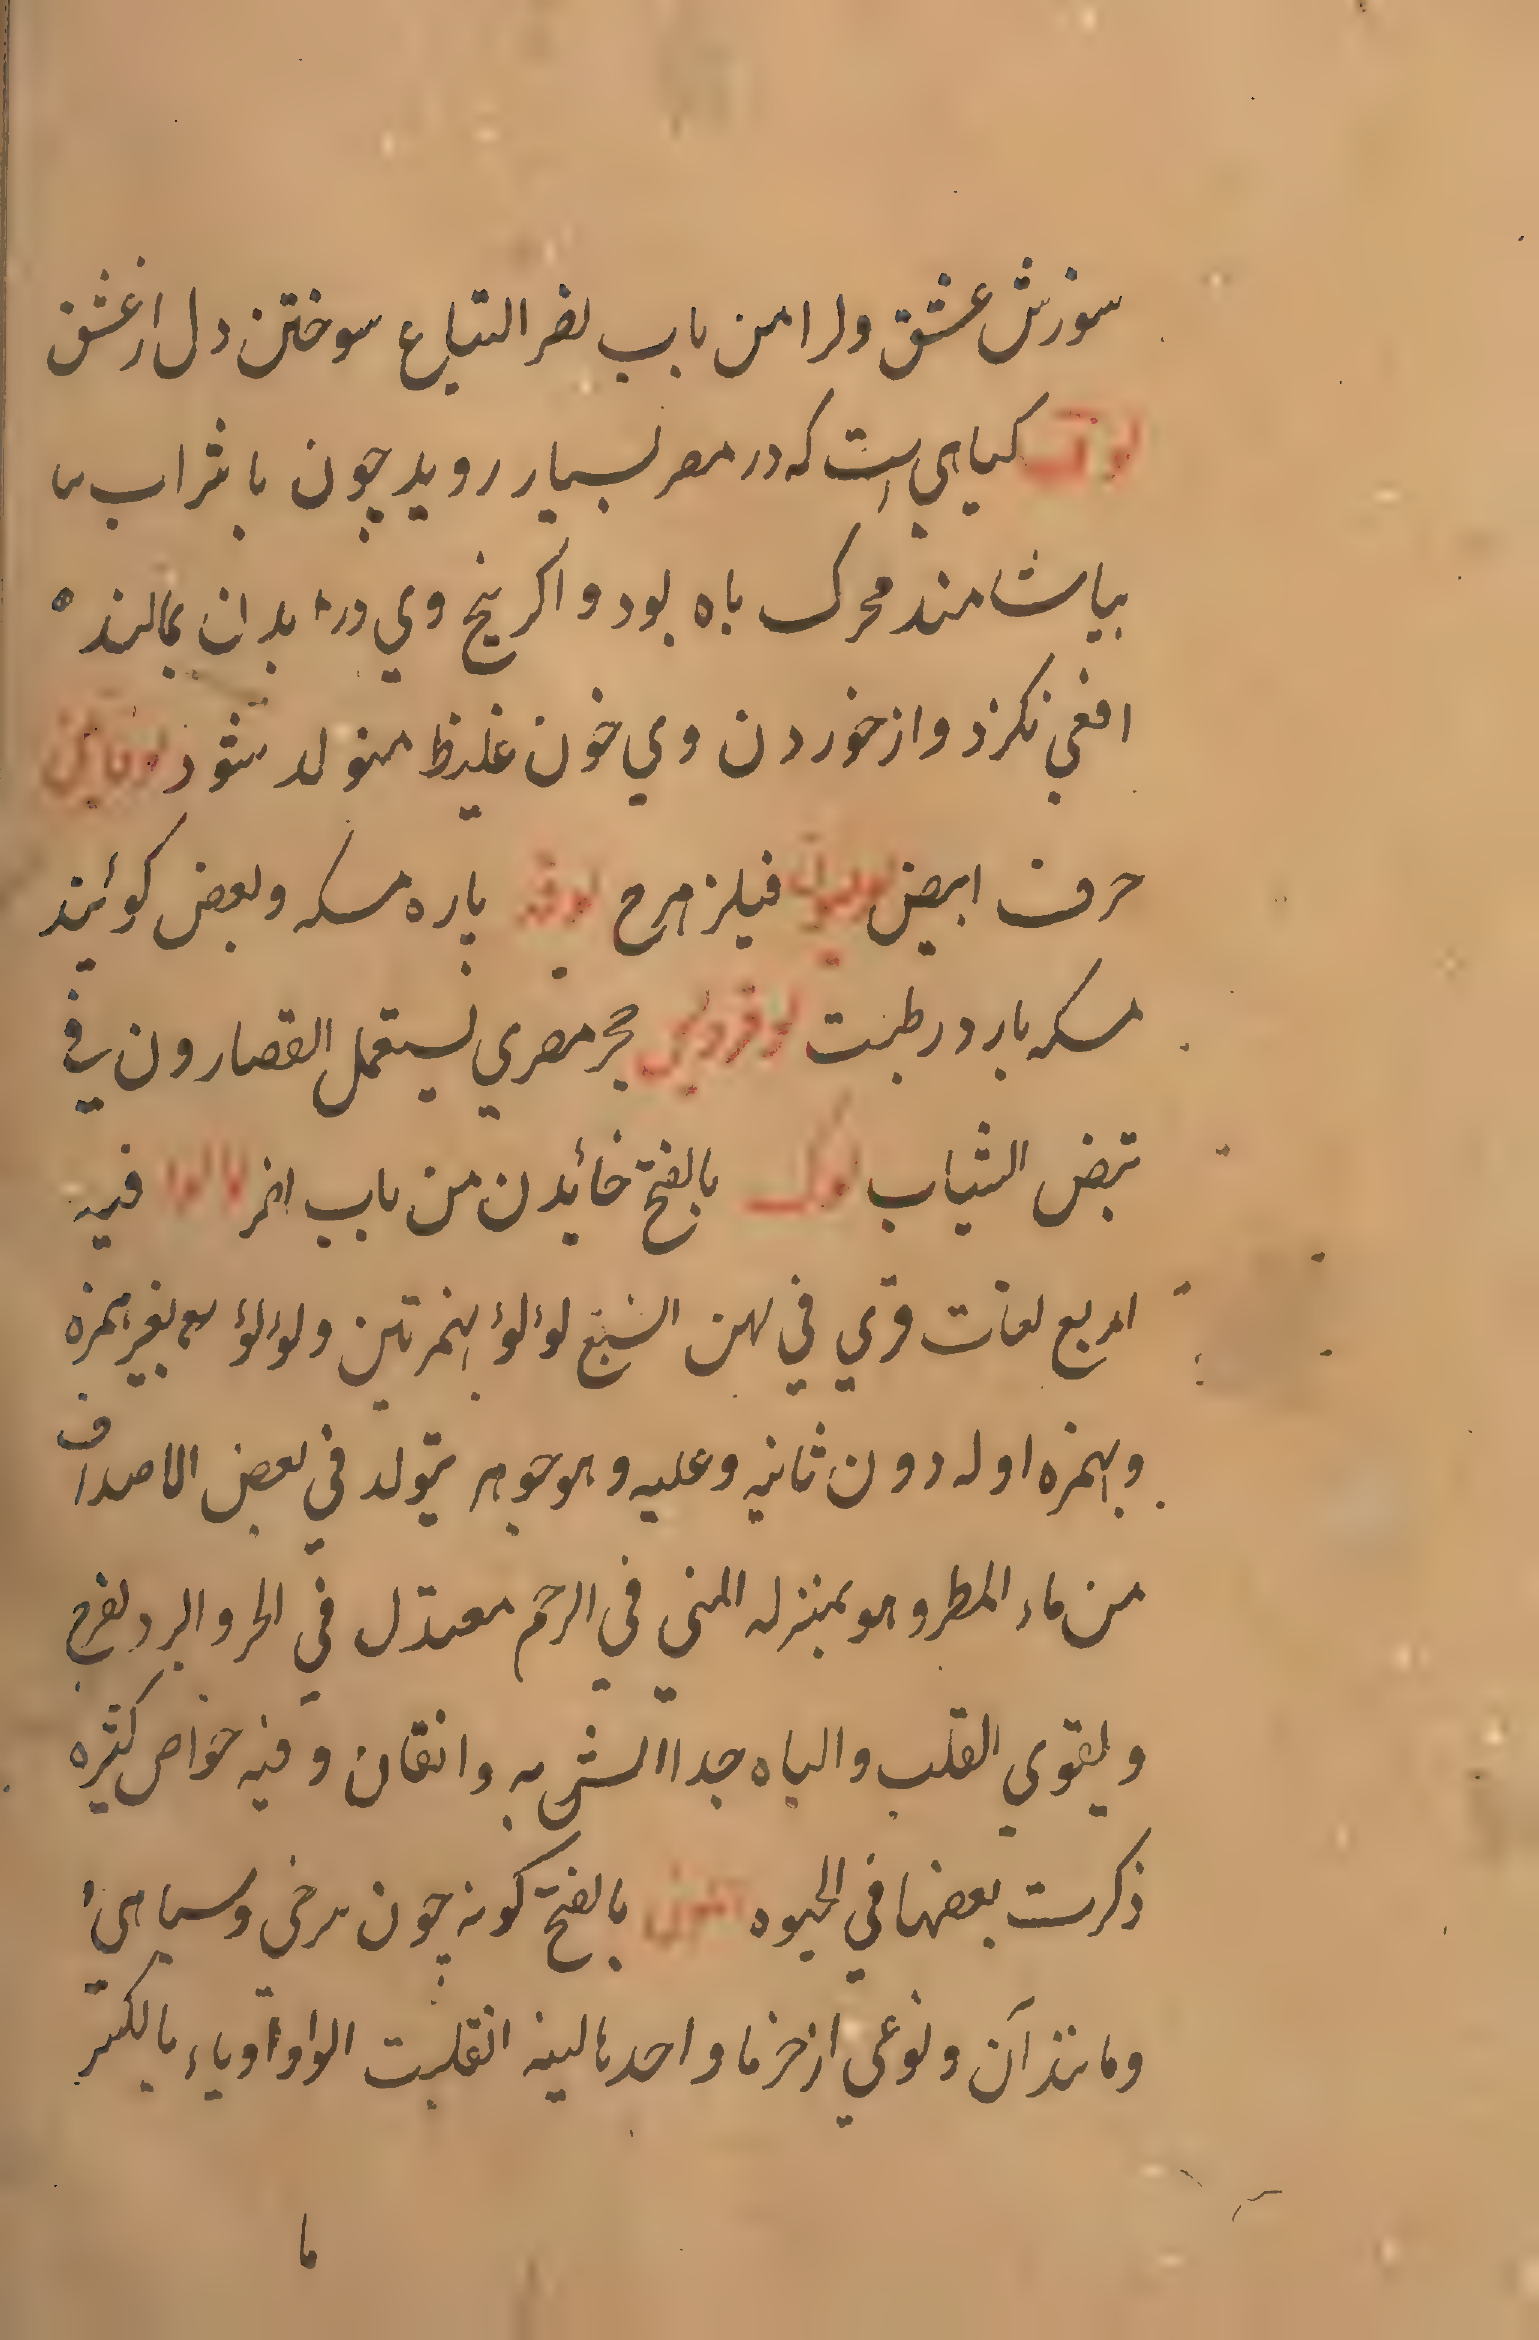 سوزش عشق ولرا من باب نصر التياع سوختن دل از عشق
لوف کیاهي است که در مصر بسیار روید چون با شراب
بیاشامند محرک باه بود و اکر بیخ وي در ابدان بمالند
افعي نکزد و از خوردن وي خون غلیظ متولد شود
حرف ابیض فیلزهرج لوقه پاره مسکه و بعض کوئید
مسکه بارد رطبت لوقرديس حجر مصري يستعمل القصارون في
تبض الثياب لوک بالفتح خائدن من باب اخر لالوا فيه
اربع لغات قري في بهن السبع لؤلؤ بهمزتين ولؤلؤ بغير همزه
وبهمزه اوله دون ثانيه وعليه وهو جوهر يتولد في بعض الاصداف
من ماء المطر وهو بمنزله المني في الرحم معتدل في الحر والبرد يفرح
ويقوي القلب والباه جدا الشربه دانقان وفيه خواص كثيره
ذكرت بعضها في الحيوه اللون بالفتح کونه چون سرخي وسیاهي
ومانند آن ونوعي از خرما واحدها لينه انقلبت الواو ياء بالكسر
ما